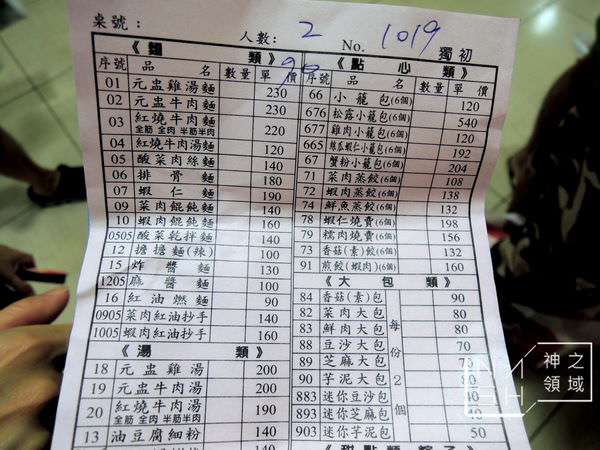 桌號：
人數：2 No. 1019
獨初
《麵類》
序號 品名 數量 單價
01 元盅雞湯麵 230
02 元盅牛肉麵 230
03 紅燒牛肉麵 全筋 全肉 半筋半肉 220
04 紅燒牛肉湯麵 120
05 酸菜肉絲麵 140
06 排骨麵 180
07 蝦仁麵 190
09 菜肉餛飩麵 140
10 蝦肉餛飩麵 160
0505 酸菜乾拌麵 140
12 擔擔麵(辣) 100
15 炸醬麵 130
1205 麻醬麵 100
16 紅油燃麵 90
0905 菜肉紅油抄手 140
1005 蝦肉紅油抄手 160
《湯類》
18 元盅雞湯 200
19 元盅牛肉湯 200
20 紅燒牛肉湯 全筋 全肉 半筋半肉 190
13 油豆腐細粉 140
《點心類》
序號 品名 數量 單價
66 小籠包(6個) 120
676 松露小籠包(6個) 540
677 雞肉小籠包(6個) 120
665 絲瓜蝦仁小籠包(6個) 192
67 蟹粉小籠包(6個) 204
71 菜肉蒸餃(6個) 108
72 蝦肉蒸餃(6個) 138
74 鮮魚蒸餃(6個) 132
78 蝦仁燒賣(6個) 198
79 糯肉燒賣(6個) 156
73 香菇(素)餃(6個) 132
91 煎餃(蝦肉)(6個) 160
《大包類》
每份2個
84 香菇(素)包 90
82 菜肉大包 80
83 鮮肉大包 80
88 豆沙大包 70
89 芝麻大包 70
90 芋泥大包 80
883 迷你豆沙包 40
893 迷你芝麻包 40
903 迷你芋泥包 50
神之領域